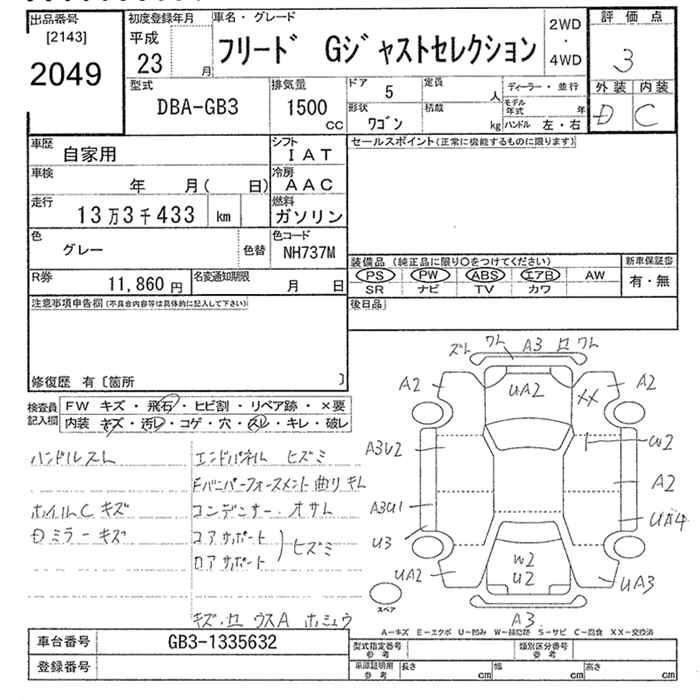 出品番号 初度登録年月 車名・グレード 2WD 評価点
[2143] 平成 フリード Gジャストセレクション ・ 3
2049 23 月 4WD 外装 内装
型式 排気量 ドア 5 定員 人 ディーラー・並行 D C
DBA-GB3 1500 cc 形状 ワゴン 積載 kg モデル年式 年
ハンドル 左・右
車歴 自家用 シフト IAT セールスポイント(正常に機能するものに限ります)
車検 年 月( 日) 冷房 AAC
走行 13万3千433 km 燃料 ガソリン
色 グレー 色替 色コード NH737M
装備品 (純正品に限り○をつけてください) 新車保証書
PS PW ABS エアB AW 有・無
SR ナビ TV カワ
R券 11,860円 名変通知期限 月 日
後日品
注意事項申告欄(不具合内容等は具体的に記入して下さい)
修復歴 有〔箇所 〕
検査員記入欄 FW キズ・飛石・ヒビ割・リペア跡・×要
内装 キズ・汚レ・コゲ・穴・スレ・キレ・破レ
ズレ ワレ A3 ロ ワレ
A2 UA2 XX A2
A3U2 W2
A3U1 A2
U3 UA4
UA2 W2 U2 UA3
A3
スペア
ハンドルスレ エンドパネル ヒズミ
Fバンパーフォースメント曲り キレ
ホイルC キズ コンデンサー オサレ
Dミラーキズ コアサポート
ロアサポート ヒズミ
キズ・ロ ウスA ホミュウ
A-キズ E-エクボ U-凹み W-補修跡 S-サビ C-腐食 XX-交換済
車台番号 GB3-1335632 型式指定番号 参考 類別区分番号 参考
登録番号 車庫証明用 参考 長さ cm 幅 cm 高さ cm